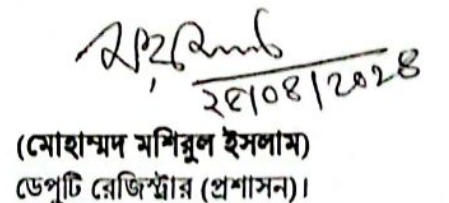 ২৫/০৪/২০২৪
(মোহাম্মদ মশিরুল ইসলাম)
ডেপুটি রেজিস্ট্রার (প্রশাসন)।